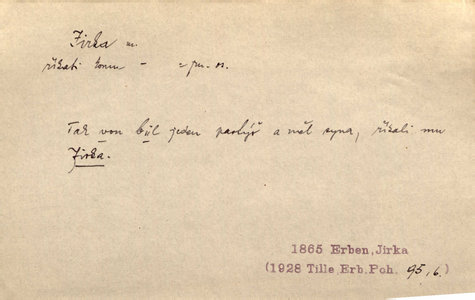 Jirka m.
říkati komu –
Tak von býl jeden pantýř a měl syna, říkali mu
Jirka.
1865 Erben, Jirka
(1928 Tille, Erb. Poh. 95, 6.)